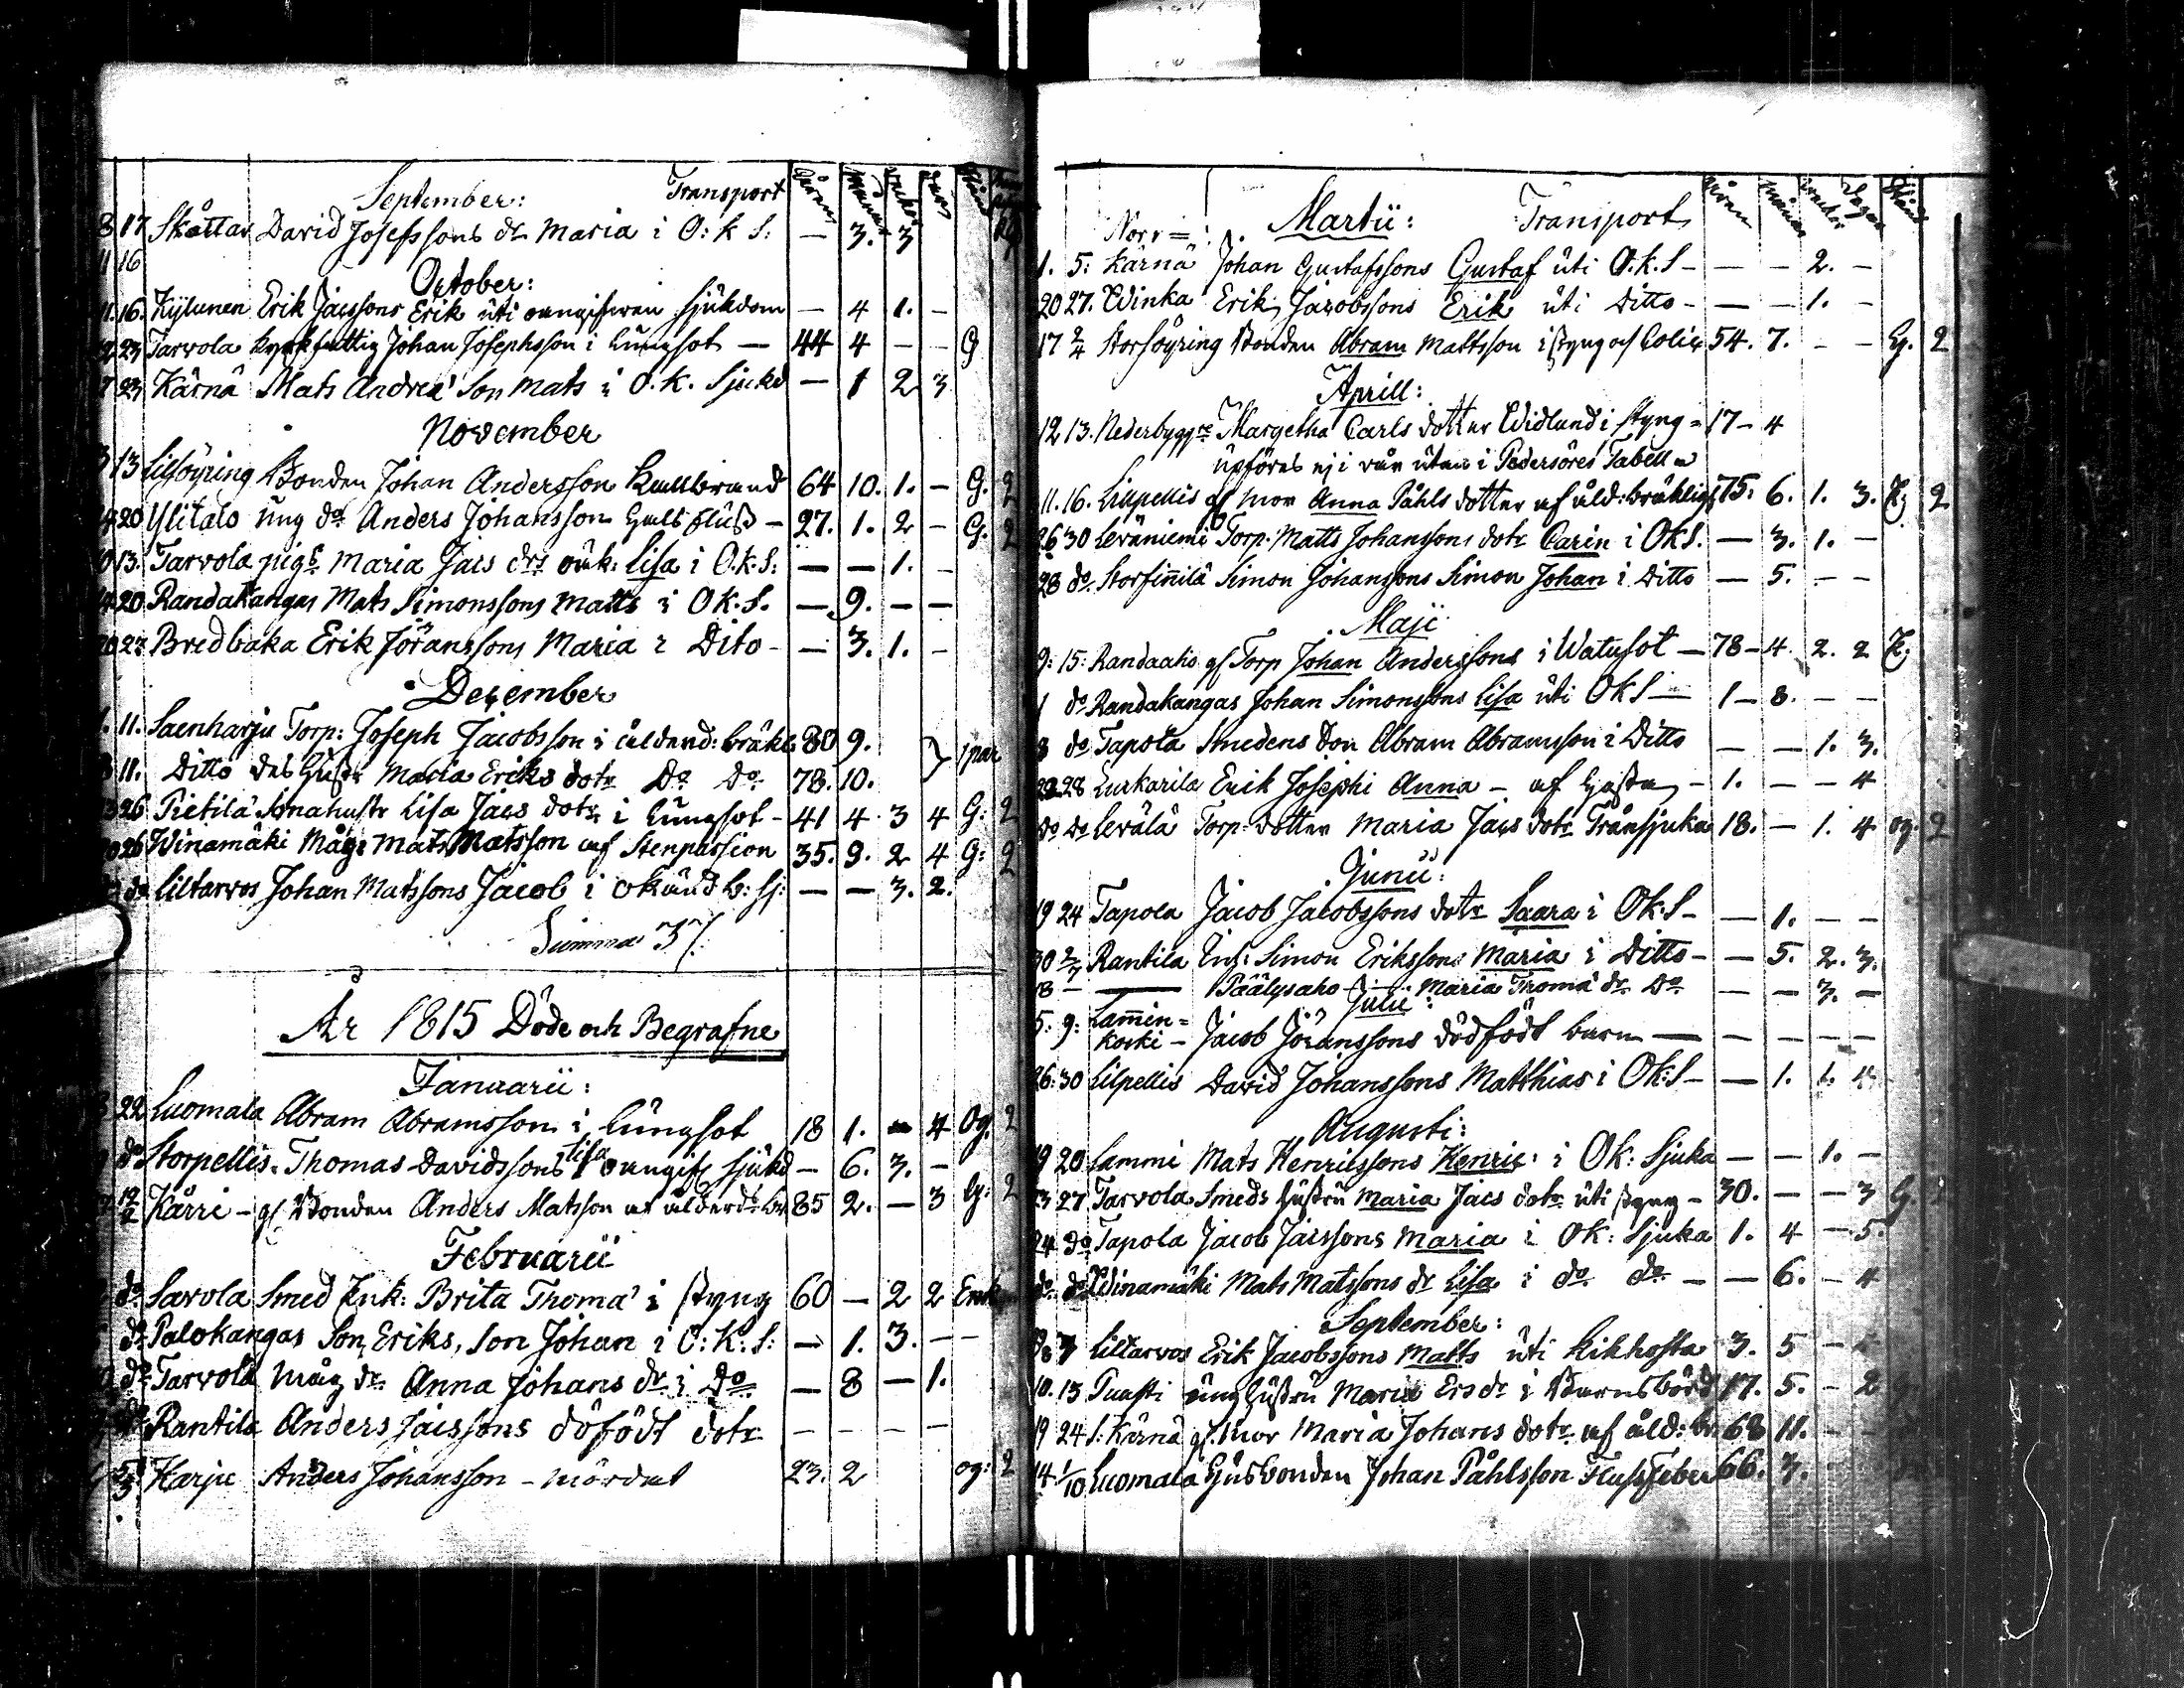 September: Transport
17 Skåttar David Josefssons dr Maria i O: k S: — 3. 3
11 16
October:
11. 16. Kylunen Erik Jacssons Erik uti oangifwen sjukdom — 4 1. -
23 Tarvola kyrkfattig Johan Josephsson i Lungsot — 44 4 — - G
23 Kärnä Mats Andreæ Son Mats i O. K. Sjukd — 1 2 3
November
13 Lillsöyring Bonden Johan Andersson Kallbrand 64 10. 1. - G. 2
20 Ylitalo ung do Anders Johansson Halsfluss - 27. 1. 2 - G. 2
13. Tarvola pigs Maria Jacs drs oäk: Lisa i O.k.S: — — 1. -
20. Randakangas Mats Simonssons Matts i O K. S. — 9. — —
27. Bredbaka Erik Jöranssons Maria i Dito - — 3. 1. -
December
11. Saenharju Torp: Joseph Jacobsson i ålderd: bräkl: 80 9. } 1 par
11. Ditto des Hustr Maria Eriks dotr Do Do 78. 10.
26 Pietilä Sonahustr Lisa Jacs dotr i Lungsot - 41 4. 3 4 G: 2
26 Winamäki Måg: Mats Matsson af Stenpassion 35. 9. 2 4 G: 2
do Liltarvos Johan Matssons Jacob i okänd b: sj: — — 3. 2.
Summa 37.
År 1815 Döde och Begrafne
Januarii:
22 Luomala Abram Abramsson i Lungsot 18 1. — 4 Og. 2
do Storpellis. Thomas Davidssons Lisa oangif sjukd - 6. 3. -
12/2 Kärre - gl Bonden Anders Matsson af ålderds br 85 2. — 3 G: 2
Februarii
do Sarvola Smed Enk: Brita Thomæ i styng 60 — 2 2 Enk
do Palokangas Son, Eriks, Son Johan i O: K: S: — 1. 3. - -
do Tarvola Måg dr Anna Johans dr i Do — 8 — 1.
do Rantila Anders Jacssons döfödt dotr - - - -
5/3 Harju Anders Johansson - mördat 23. 2 og: 2
Norr = : Martii: Transport
1. 5: Kärnä Johan Gustafssons Gustaf uti O.k.S - — - 2. -
20 27. Winka Erik Jacobssons Erik uti Ditto - — - 1. -
17 2/4 Storsöyring Bonden Abram Mattsson i styng och Colic 54. 7. - - G. 2
Aprill:
12 13. Nederbyggre Margetha Carls dotter Widlund i styng = 17 - 4
upföres ej i vår utan i Pedersöres Tabell
11. 16. Lillpellis gl mor Anna Påhls dotter af åld: bräklight 75. 6. 1. 3. E; 2
26 30 Leväniemi Torp. Matts Johanssons dotr Carin i OkS. — 3. 1. -
28 do. Storfinnilä Simon Johanssons Simon Johan i Ditto — 5. - -
Maji
9: 15: Randaaho gl Torp Johan Anderssons i Watusot — 78 - 4. 2. 2 E:
1 do Randakangas Johan Simonssons Lisa uti OkS — 1 - 8. - -
8 do Tapola Smedens Son Abram Abramsson i Ditto — — 1. 3.
28 Lurkarila Erik Josephi Anna - af Hosta - 1. — - 4
Do Do Levälä Torp: dotter Maria Jacs dotr Trånsjuka 18. — 1. 4 og. 2
Junii:
19 24 Tapola Jacob Jacobssons dotr Saara i Ok.S - — 1. - -
30 2/7 Rantila Inh: Simon Erikssons Maria i Ditto - — 5. 2. 3.
18 — Päälysaho - Maria Thomæ dr Do — — 3. -
Julii:
5. 9: Lamin= koski - Jacob Jöranssons dödfödt barn — - - - -
26. 30 Lilpellis David Johanssons Matthias i Ok:S - — 1. 1. 4
Augusti:
19 20 Lammi Mats Henrikssons Henric i Ok: Sjuka — — 1. -
23 27 Tarvola Smeds Hustru Maria Jacs dotr uti styng - 30. — — 3 G
24 do Tapola Jacob Jacssons Maria i Ok: Sjuka 1. 4 — 5.
do. do Winamäki Mats Matssons dr Lisa i do do - — 6. - 4
September:
7 Liltarvos Erik Jacobssons Matts uti Kikhosta 3. 5 -
10. 13 Puasti ung Hustru Maria Ers dr i Barnsbörd 17. 5. - 2
19 24 S: Kärnä gl. Mor Maria Johans dotr af åld: br. 68 11. - -
14 1/10 Luomala Husbonden Johan Påhlsson FlussFeber 66. 3. -